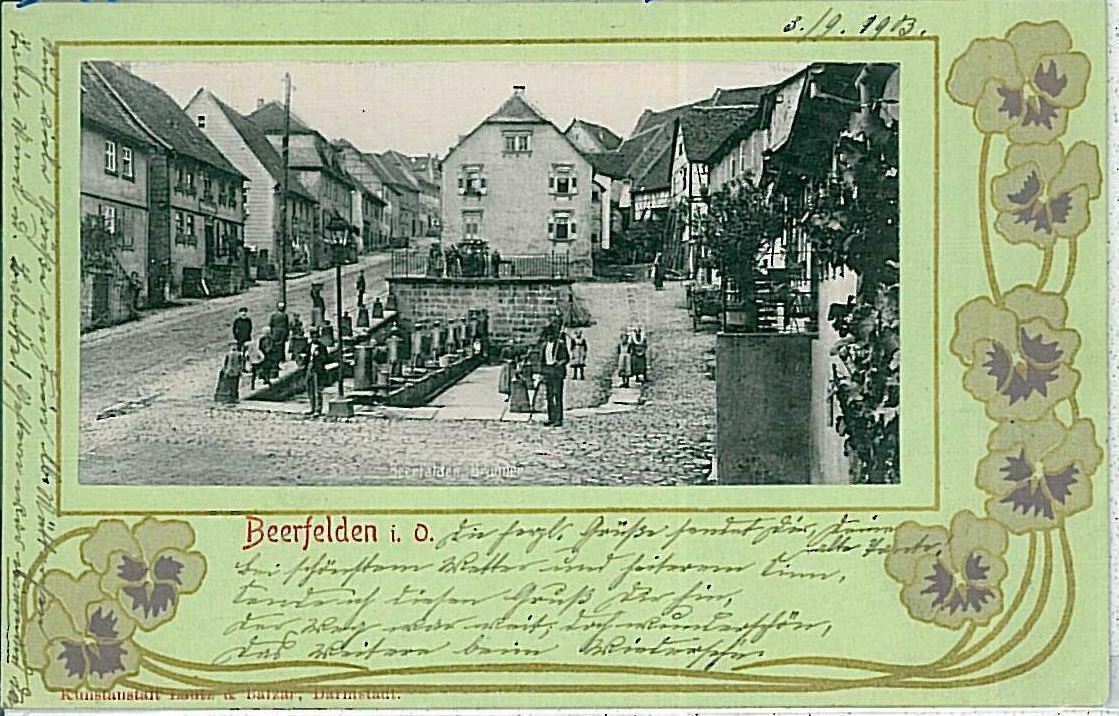 3./9. 1903.
Beerfelden Brunnen
Beerfelden i. O.
Die herzl. Grüße sendet Dir, Deine
alte Tante.
Bei schönstem Wetter und heiterem Sinn,
sende ich diesen Gruß Dir hin,
der Weg war weit, doch wunderschön,
das Weitere beim Wiedersehn
Kunstanstalt Lautz & Balzar, Darmstadt.